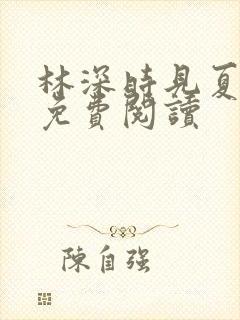 林深時見夏
免費閱讀
陳自强